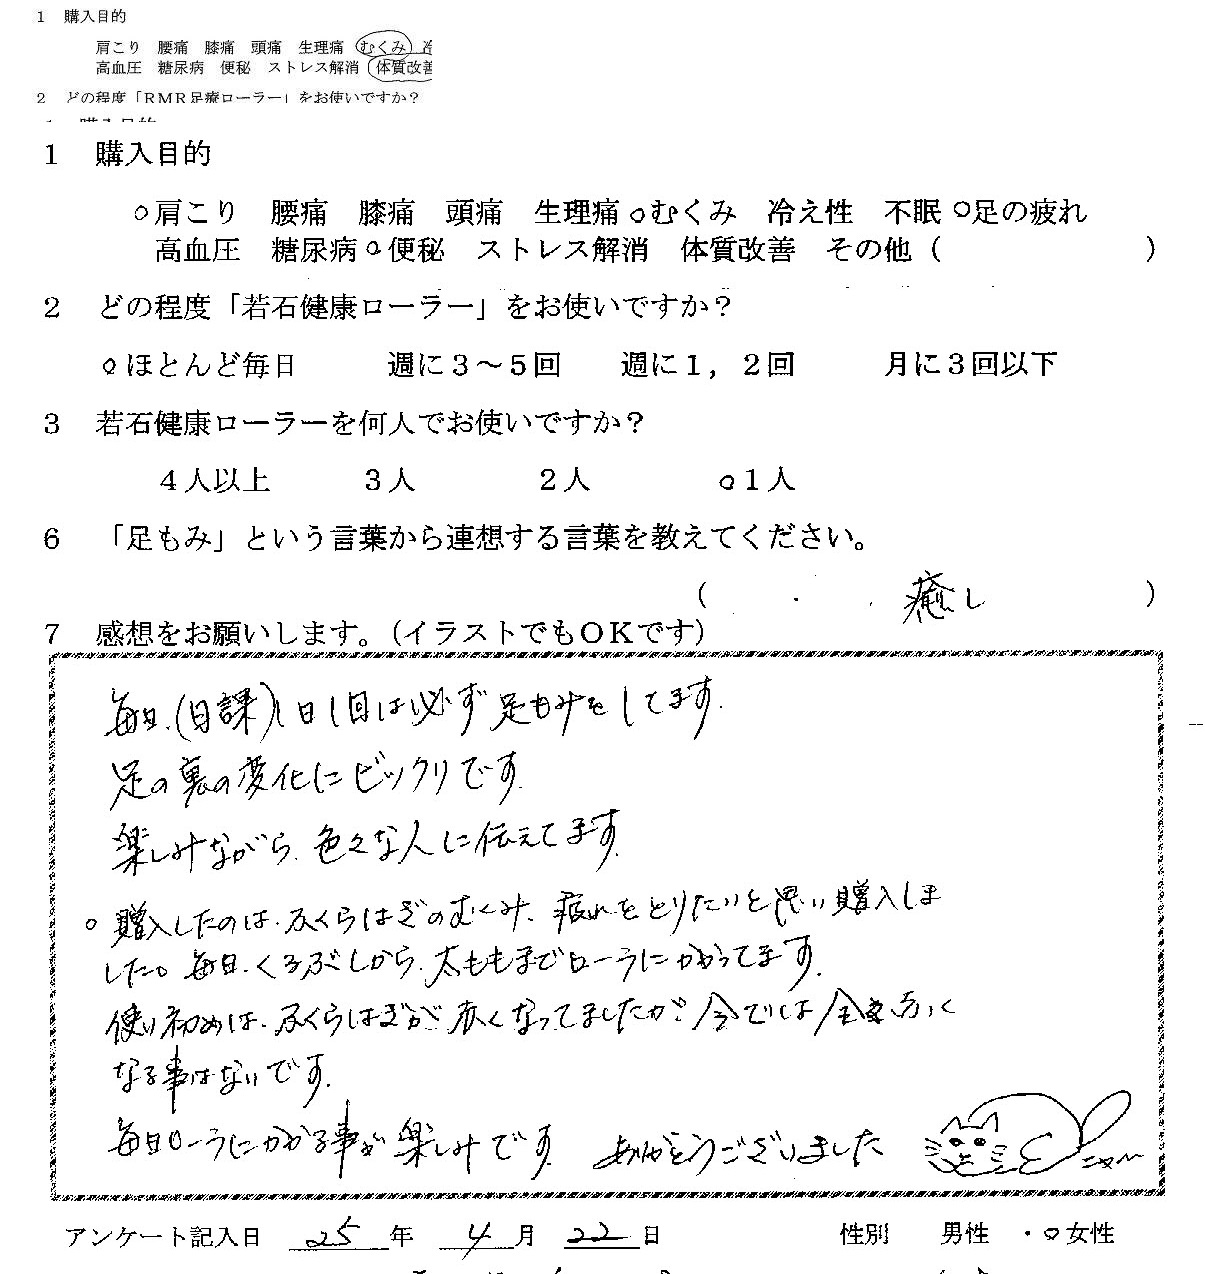 1 購入目的
肩こり 腰痛 膝痛 頭痛 生理痛 むくみ
高血圧 糖尿病 便秘 ストレス解消 体質改善
2 どの程度「RMR足療ローラー」をお使いですか?
1 購入目的
○肩こり 腰痛 膝痛 頭痛 生理痛 ○むくみ 冷え性 不眠 ○足の疲れ
高血圧 糖尿病 ○便秘 ストレス解消 体質改善 その他( )
2 どの程度「若石健康ローラー」をお使いですか?
○ほとんど毎日 週に3〜5回 週に1,2回 月に3回以下
3 若石健康ローラーを何人でお使いですか?
4人以上 3人 2人 ○1人
6 「足もみ」という言葉から連想する言葉を教えてください。
( ・ . 癒し )
7 感想をお願いします。(イラストでもOKです)
毎日、(日課)1日1回は必ず足もみをしてます。
足の裏の変化にビックリです。
楽しみながら、色々な人に伝えてます。
○購入したのは、ふくらはぎのむくみ、疲れをとりたいと思い購入しま
した。毎日、くるぶしから、太ももまでローラにかかってます。
使い初めは、ふくらはぎが赤くなってましたが、今では全く赤く
なる事はないです。
毎日ローラにかかる事が楽しみです。ありがとうございました
ニャー
アンケート記入日 25年 4月 22日 性別 男性 ・○女性